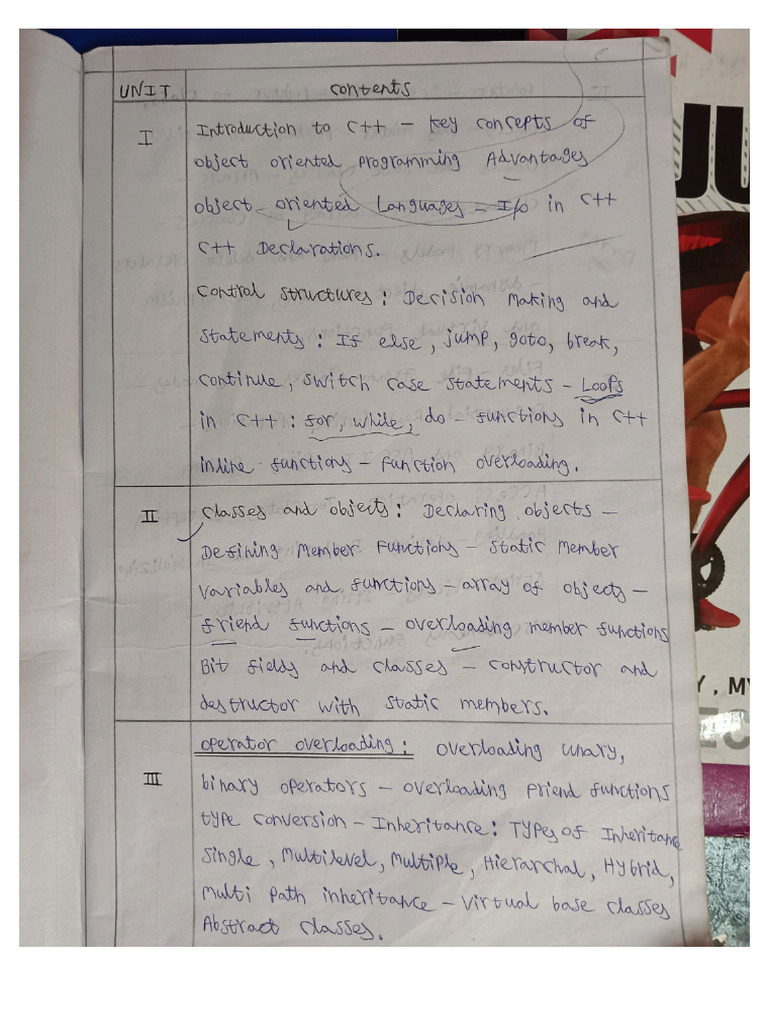 UNIT Contents
I Introduction to C++ - Key concepts of
object oriented programming Advantages
object - oriented Languages - I/o in C++
C++ Declarations.
Control structures : Decision Making and
Statements : If else, jump, goto, break,
continue, switch case statements - Loops
in C++ : for, while, do - functions in C++
inline functions - function overloading.
II Classes and objects : Declaring objects -
Defining Member Functions - Static Member
variables and functions - array of objects -
friend functions - overloading member functions
Bit fields and classes - constructor and
destructor with static members.
III operator overloading : overloading unary,
binary operators - overloading friend functions
type conversion - Inheritance : Types of Inheritance
Single, Multilevel, Multiple, Hierarchal, Hybrid,
Multi path inheritance - virtual base classes
Abstract classes.
JU
Y, MY
EC